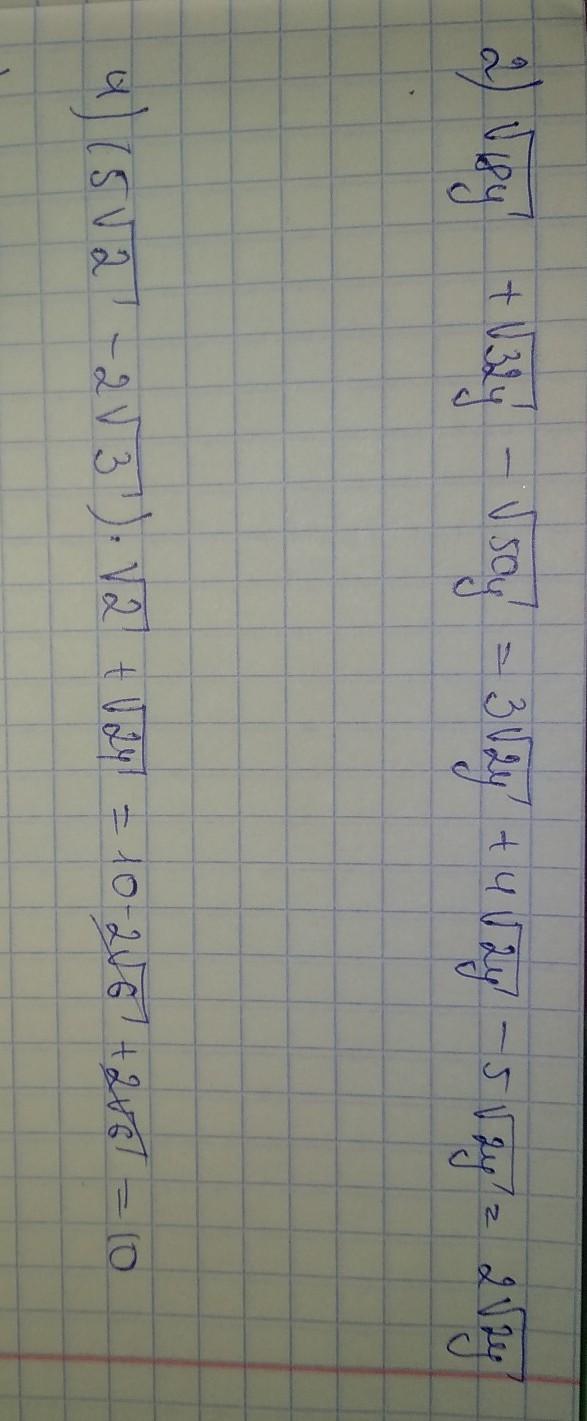 2) √18y + √32y − √50y = 3√2y + 4√2y − 5√2y = 2√2y
4) (5√2 − 2√3) · √2 + √24 = 10 - 2√6 + 2√6 = 10